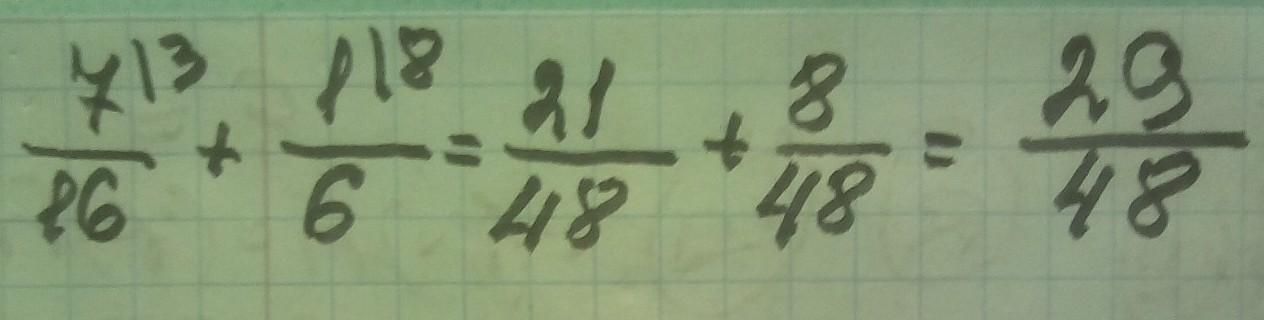 7\3/16 + 1\8/6 = 21/48 + 8/48 = 29/48